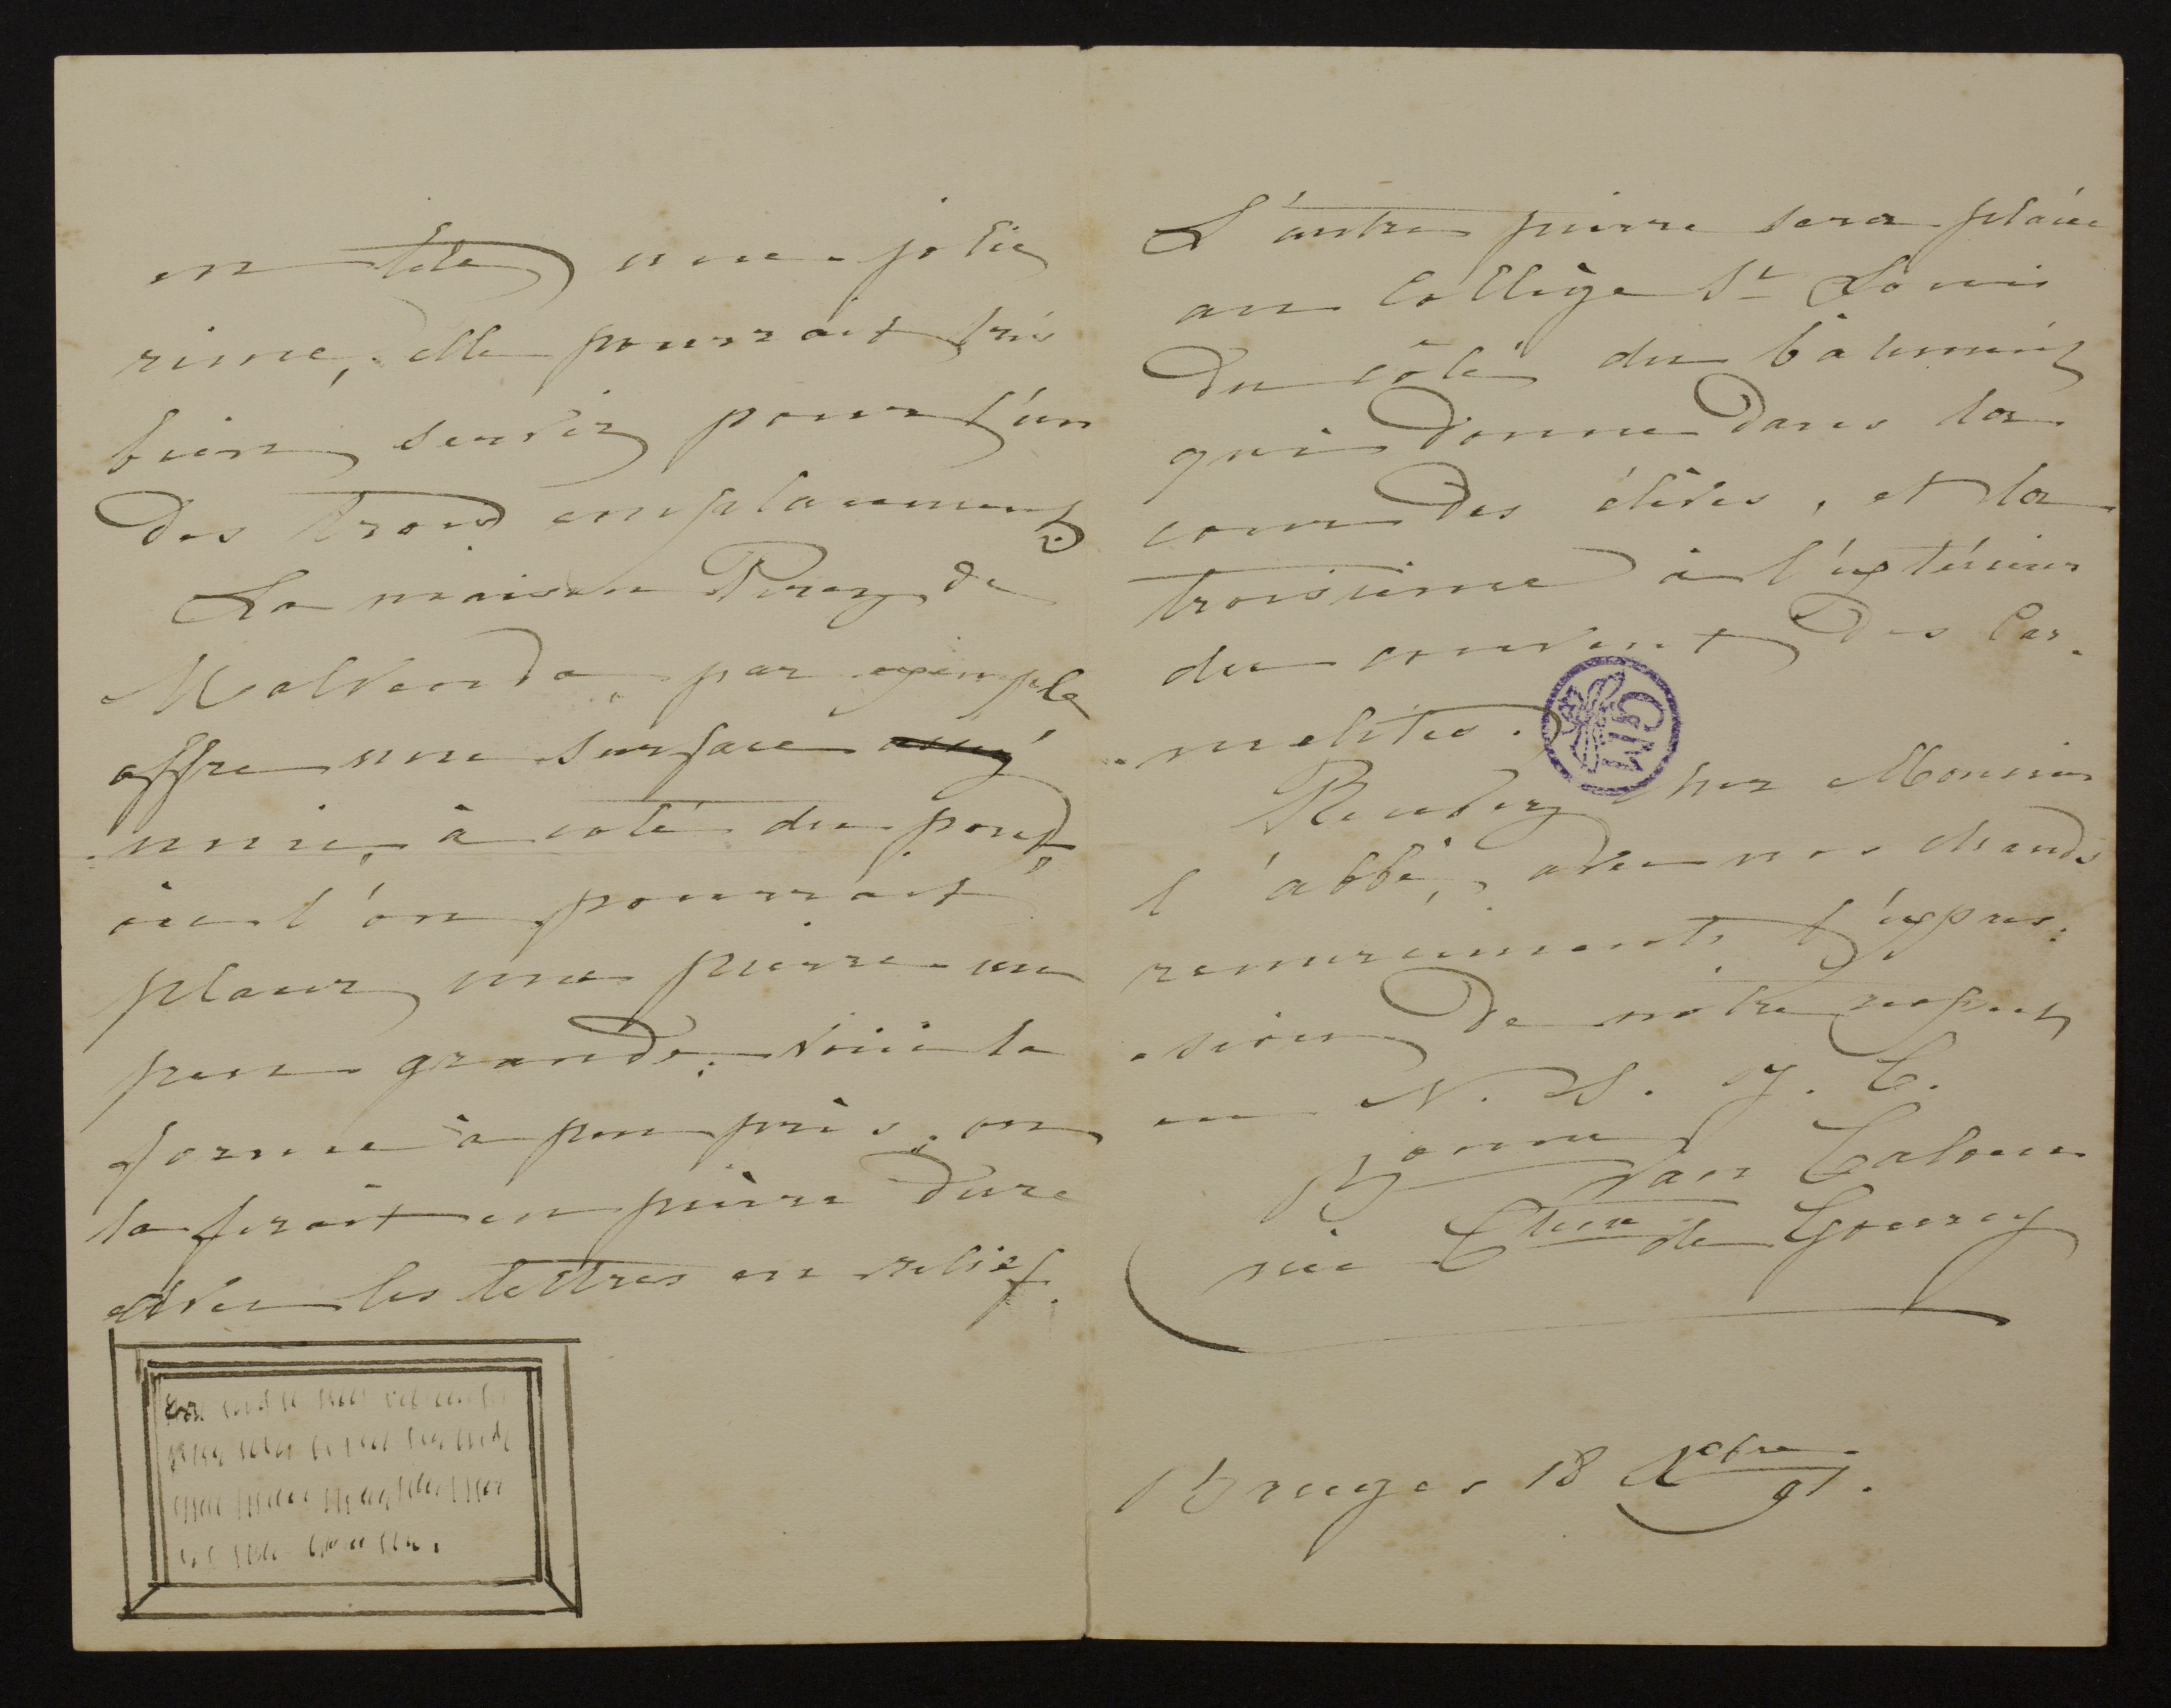 en tête une jolie
rime, elle pourrait très
bien servir pour l'un
des trois emplacements.
La maison Perez de
Malvenda, par exemple
offre une surface
unie, à coté du pont,
où l'on pourrait
placer une pierre un
peu grande: voici la
forme à peu près, on
la ferait en pierre dure
avec les lettres en relief.
L'autre pierre sera placée
au collège St Louis
du côté du bâtiment
qui donne dans la
cour des élèves, et la
troisième à l'extérieur
du couvent des Car-
melites.
GM
Recevez cher Monsieur
l'abbé, avec nos chauds
remerciements l'expres-
sion de notre respect
en N. S. J. C.
Bonne Van Caloen
née Ctesse de Gourcy
Bruges 18 Xbre 97.